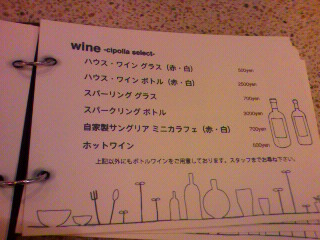 wine -cipolla select-
ハウス・ワイン グラス（赤・白） 500yen
ハウス・ワイン ボトル（赤・白） 2500yen
スパーリング グラス 700yen
スパークリング ボトル
自家製サングリア ミニカラフェ（赤・白） 700yen
ホットワイン 600yen
上記以外にもボトルワインをご用意しております。スタッフまでお尋ね下さい。